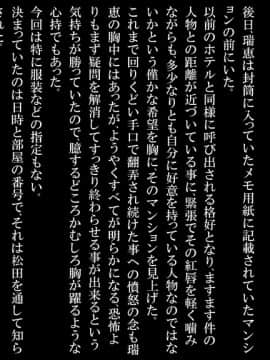 後日瑞恵は封筒に入っていたメモ用紙に記載されていたマンシ
ョンの前にいた。
以前のホテルと同様に呼び出される格好となり、ますます件の
人物との距離が近づいている事に、緊張でその紅唇を軽く噛み
ながらも多少なりとも自分に好意を持っている人物なのではな
いかという僅かな希望を胸に、そのマンションを見上げた。
これまで回りくどい手口で翻弄され続けた事への憤怒の念も瑞
恵の胸中にはあったが、ようやくすべてが明らかになる、恐怖よ
りもまず疑問を解消してすっきり終わらせる事が出来るという
気持ちが勝っていたので、臆するどころかむしろ胸が躍るような
心持でもあった。
今回は特に服装などの指定もない。
決まっていたのは日時と部屋の番号で、それは松田を通して知ら